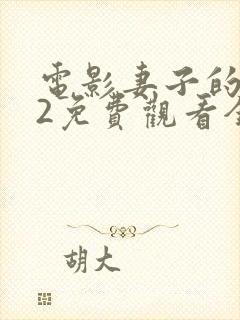 電影妻子的
2免費觀看全
胡大